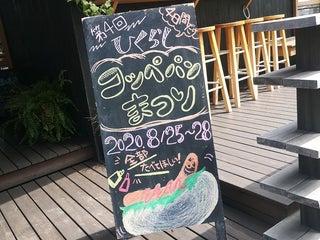 第4回
ひぐらし
コッペパン
まつり
2020.8/25~28
全部
たべてほしい!